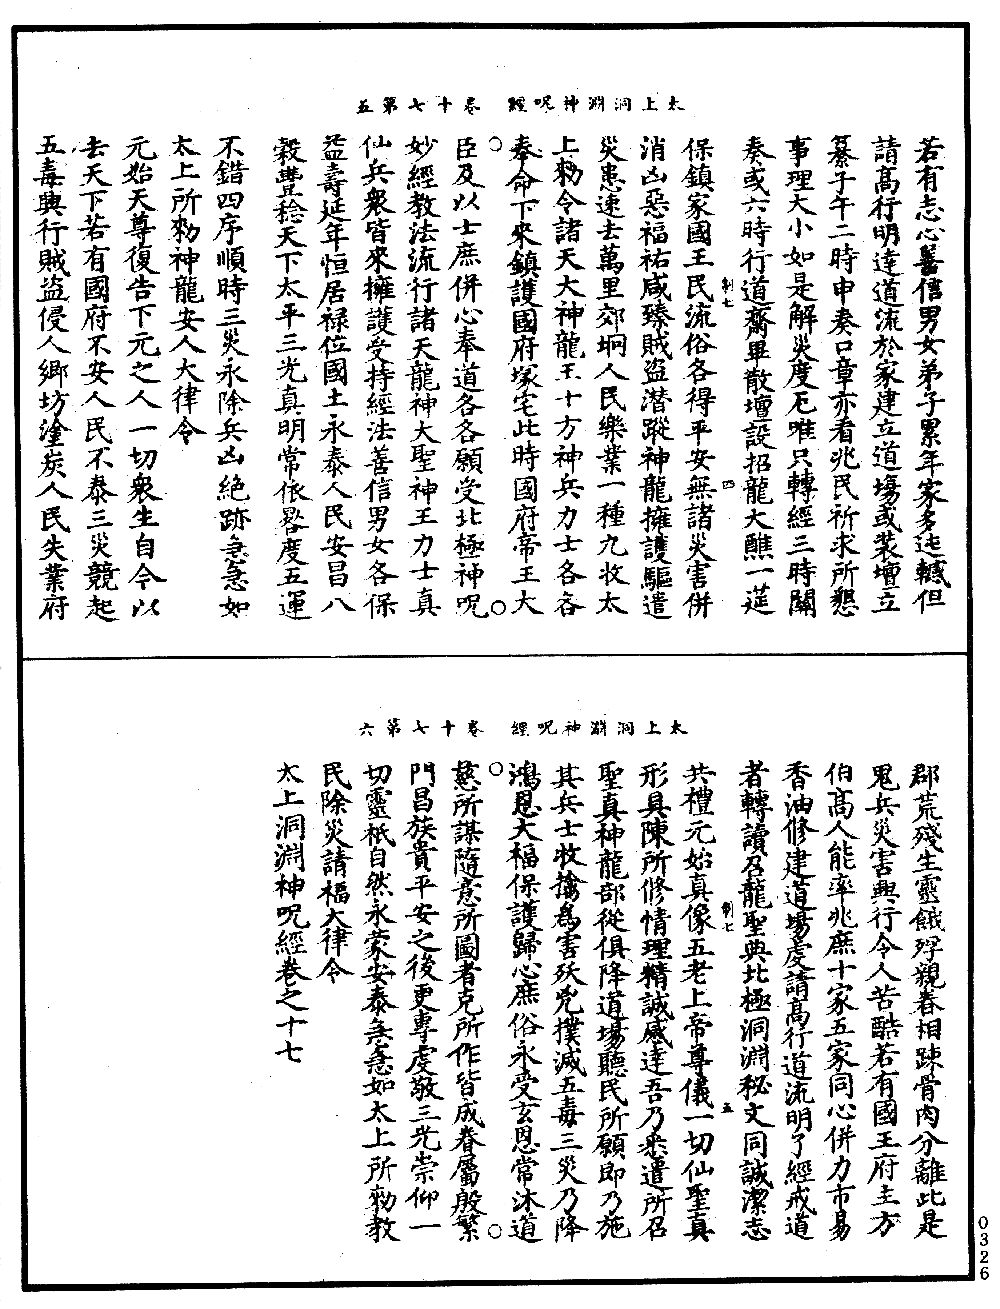 太上洞淵神呪經　卷十七第五
若有志心善信男女弟子累年家多迍轗但
請高行明達道流於家建立道場或裝壇立
纂子午二時申奏口章亦看兆民祈求所懇
事理大小如是解災度厄唯只轉經三時關
奏或六時行道齋畢散壇設招龍大醮一莚
制七　四
保鎮家國王民流俗各得平安無諸災害併
消凶惡福祐咸臻賊盜潛蹤神龍擁護驅遣
災患速去萬里郊坰人民樂業一種九收太
上勑令諸天大神龍王十方神兵力士各各
奉命下來鎮護國府塚宅此時國府帝王大
臣及以士庶併心奉道各各願受北極神呪
妙經教法流行諸天龍神大聖神王力士真
仙兵衆皆來擁護受持經法善信男女各保
益壽延年恒居祿位國土永泰人民安昌八
穀豐稔天下太平三光真明常依晷度五運
不錯四序順時三災永除兵凶絶跡急急如
太上所勑神龍安人大律令
元始天尊復告下元之人一切衆生自今以
去天下若有國府不安人民不泰三災競起
五毒興行賊盜侵人鄉坊塗炭人民失業府
太上洞淵神呪經　卷十七第六
郡荒殘生靈餓殍親眷相踈骨肉分離此是
鬼兵災害興行令人苦酷若有國王府主方
伯高人能率兆庶十家五家同心併力市易
香油修建道場虔請高行道流明了經戒道
者轉讀召龍聖典北極洞淵秘文同誠潔志
制七　五
共禮元始真像五老上帝尊儀一切仙聖真
形具陳所修情理精誠感達吾乃乘遣所召
聖真神龍部從俱降道場聽民所願即乃施
其兵士收擒爲害妖兇撲滅五毒三災乃降
鴻恩大福保護歸心庶俗永受玄恩常沐道
慈所謀隨意所圖者克所作皆成眷屬殷繁
門昌族貴平安之後更專虔敬三光崇仰一
切靈祇自然永蒙安泰急急如太上所勑教
民除災請福大律令
太上洞淵神呪經卷之十七
0326